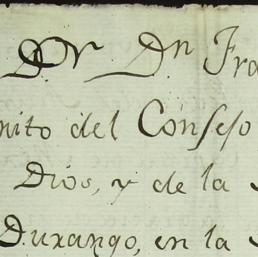 Dr. Dn Fra
nito del Consejo
Dios, y de la
Durango, en la